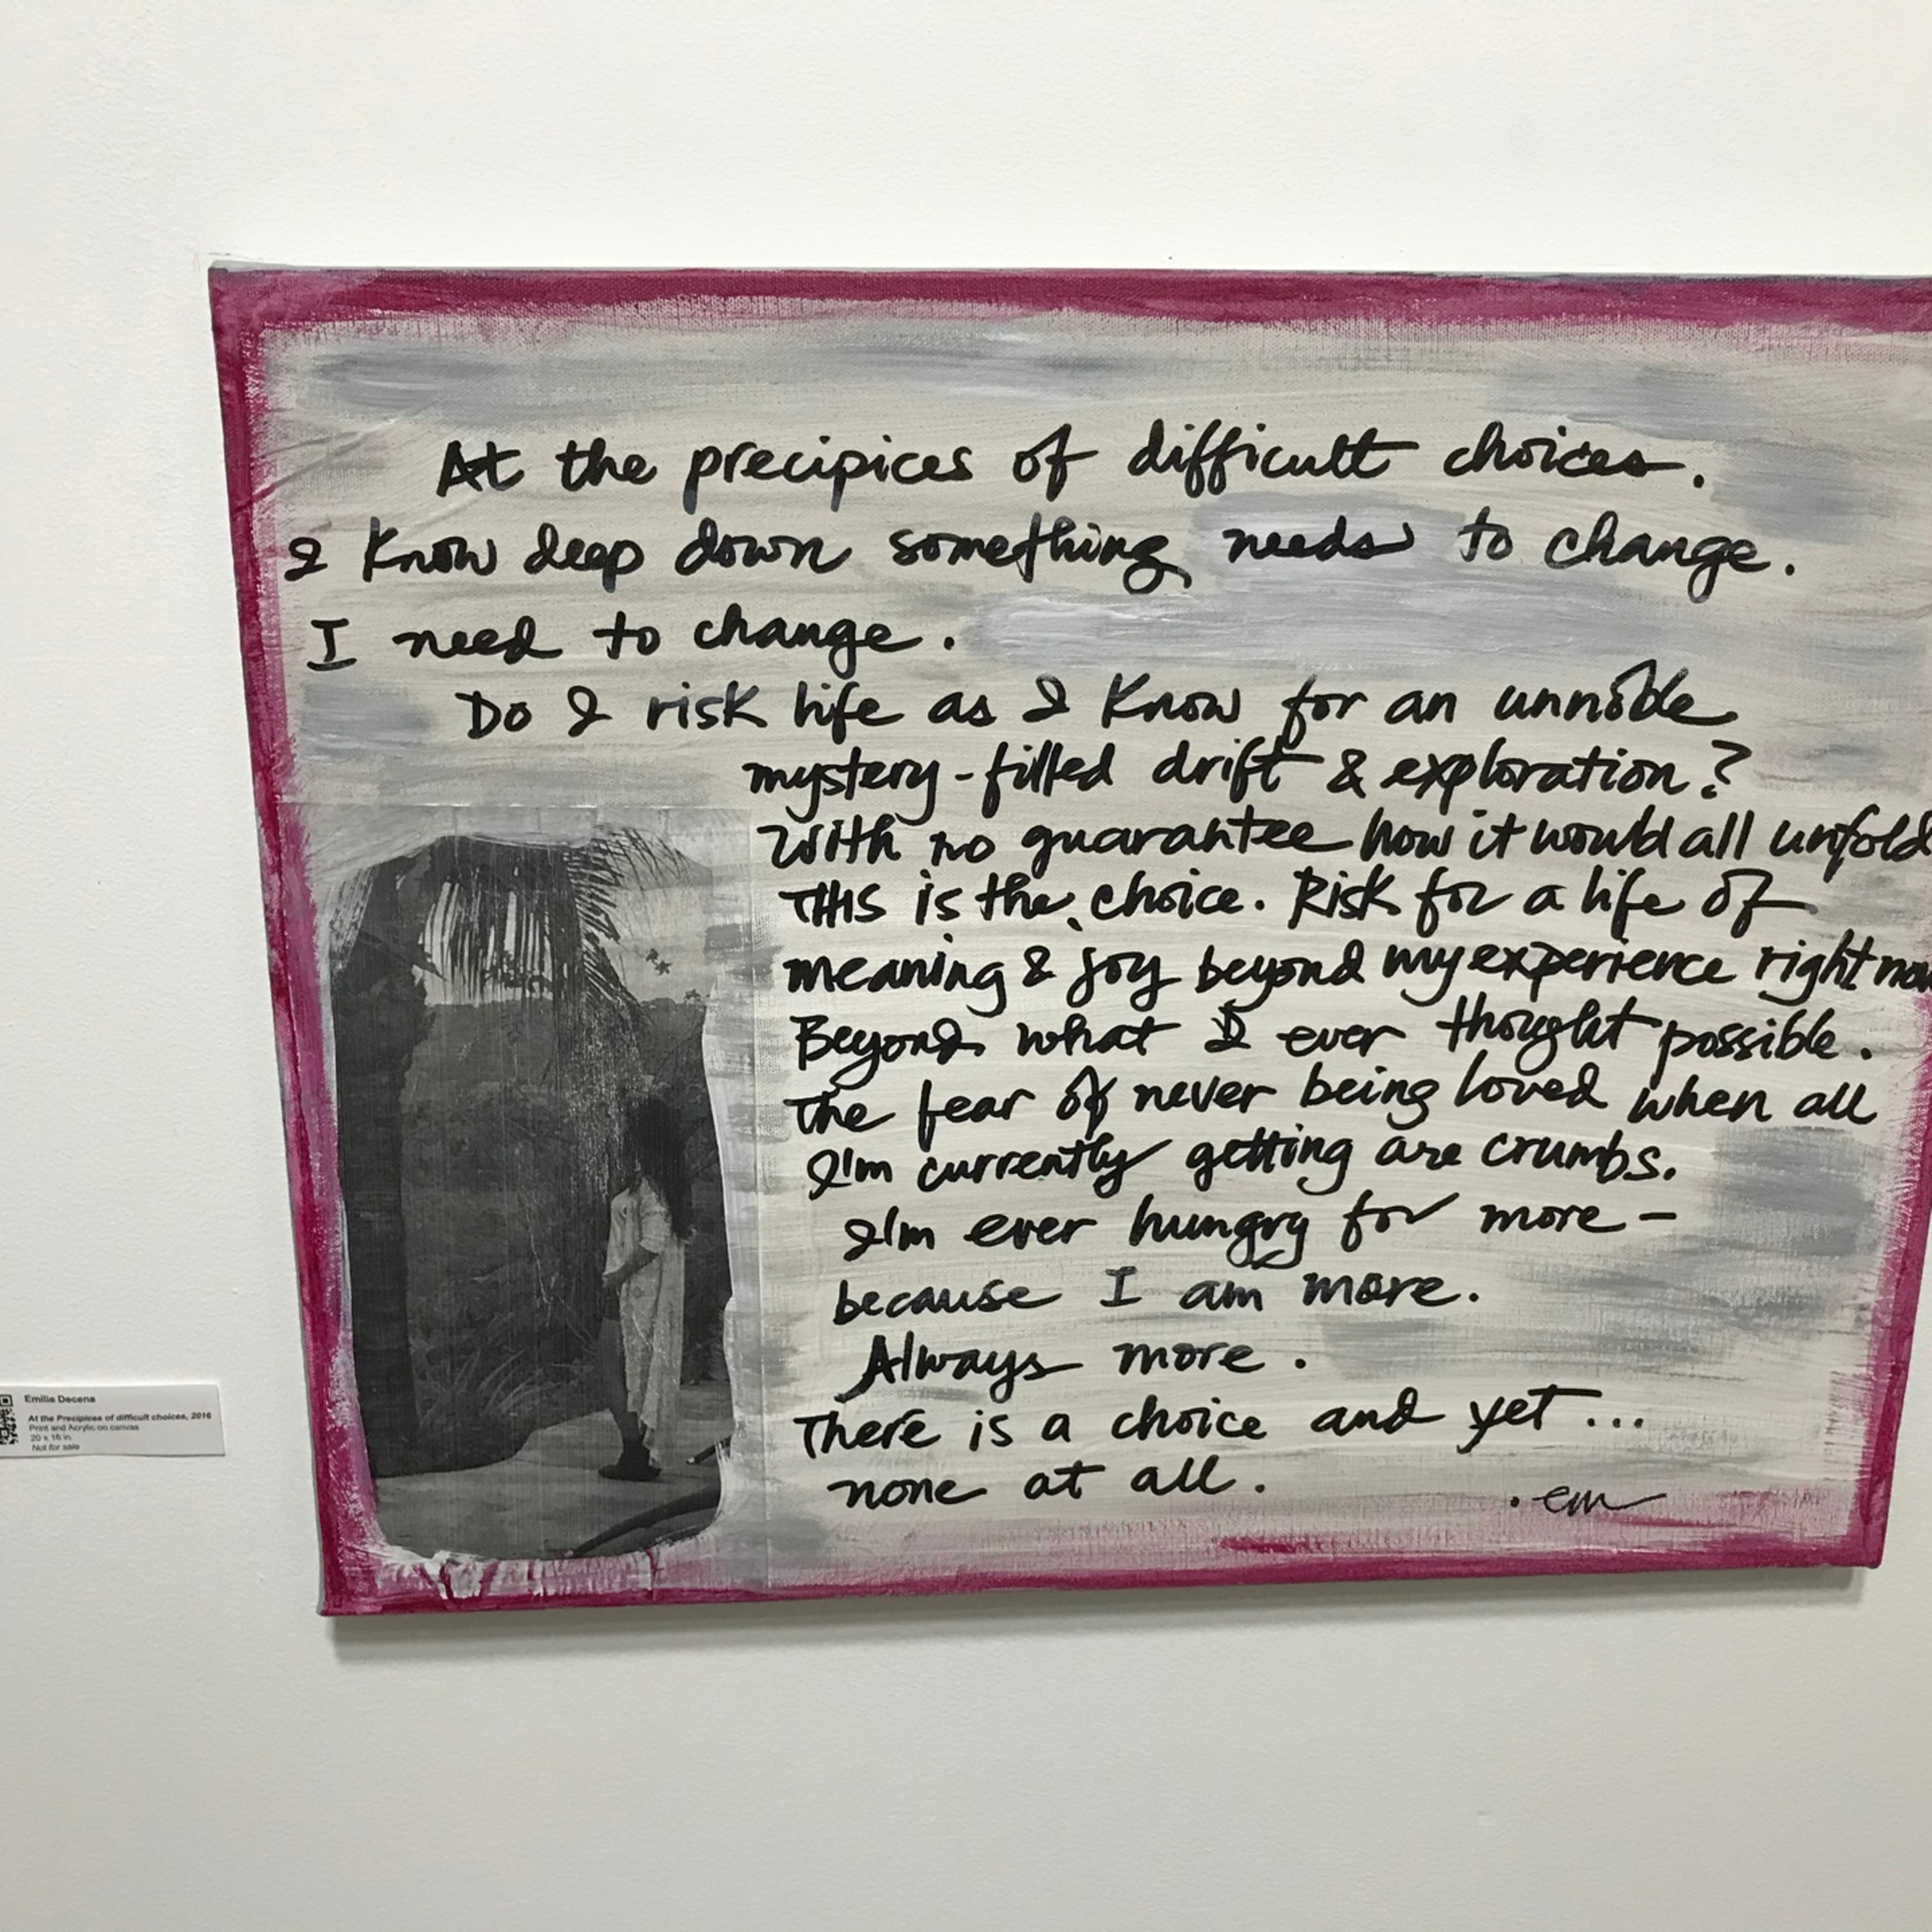 At the precipices of difficult choices.
I know deep down something needs to change.
I need to change.
Do I risk life as I know for an
mystery-filled drift & exploration?
With no guarantee how it would all unfold
THIS is the choice. Risk for a life of
meaning & joy beyond my experience right now
Beyond what I ever thought possible.
The fear of never being loved when all
I'm currently getting are crumbs.
I'm ever hungry for more -
because I am more.
Always more.
There is a choice and yet...
none at all.
. em
Emilie Decena
At the Precipices of difficult choices, 2016
Print and Acrylic on canvas
20 x 16 in.
Not for sale